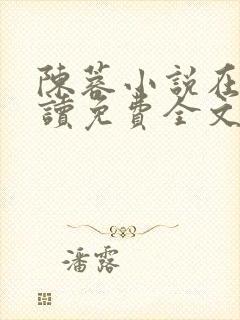 陳蓉小說在
讀免費全文
潘露